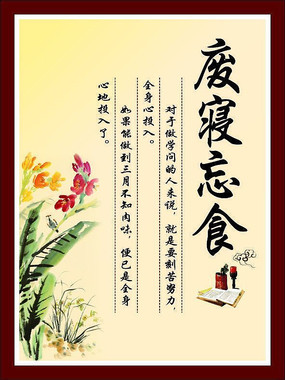 废寝忘食
对于做学问的人来说，就是要刻苦努力，
全身心投入。
如果能做到三月不知肉味，便已是全身
心地投入了。